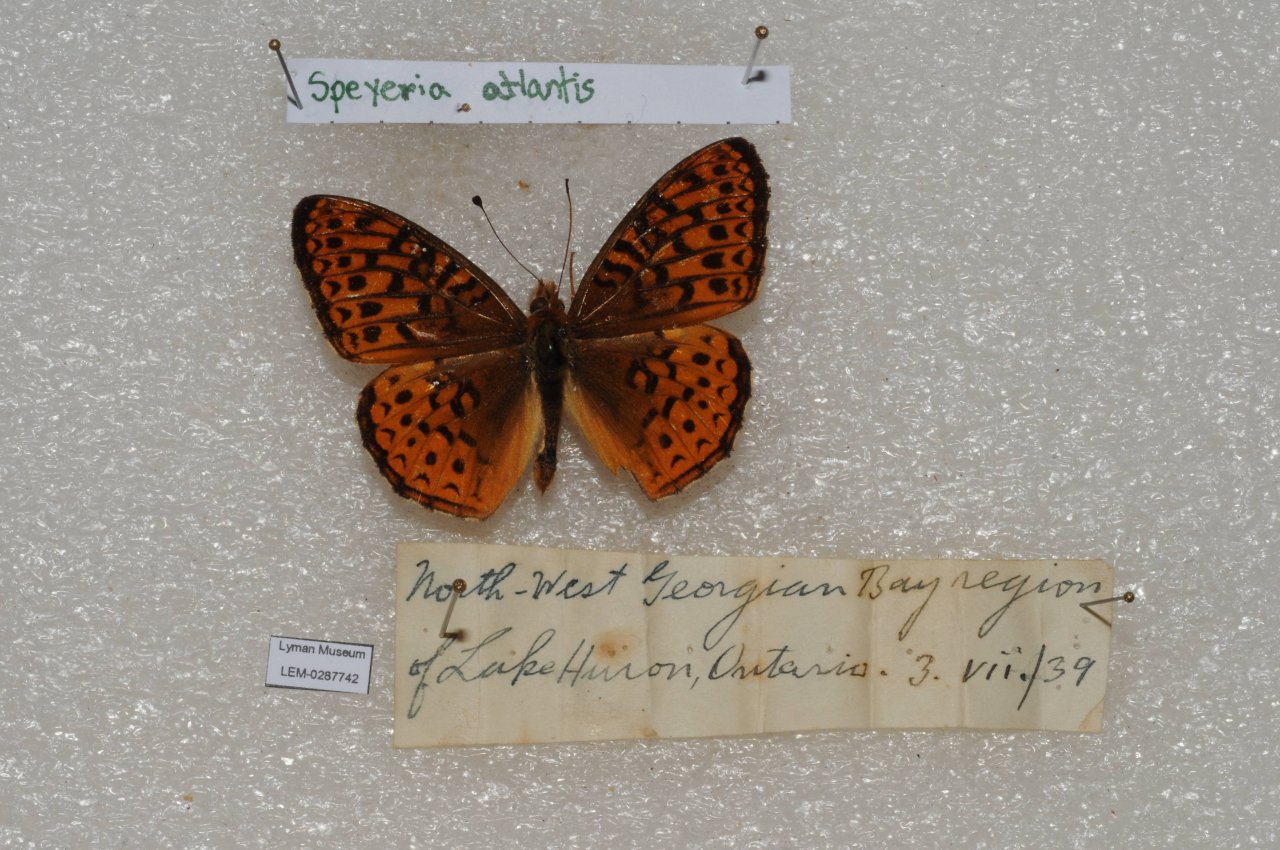 Speyeria atlantis
North-West Georgian Bay region
of Lake Huron, Ontario. 3. vii./39
Lyman Museum
LEM-0287742